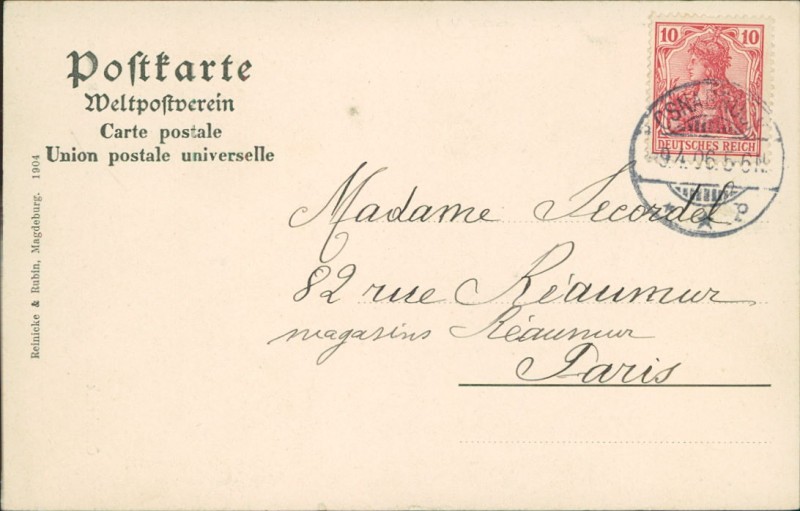 Poſtkarte
Weltpoſtverein
Carte postale
Union postale universelle
Reinicke & Rubin, Magdeburg. 1904
10 10
DEUTSCHES REICH
OSNA
9.4.06. 5-6 N.
Madame Lecordel
82 rue Réaumur
magasins Réaumur
Paris